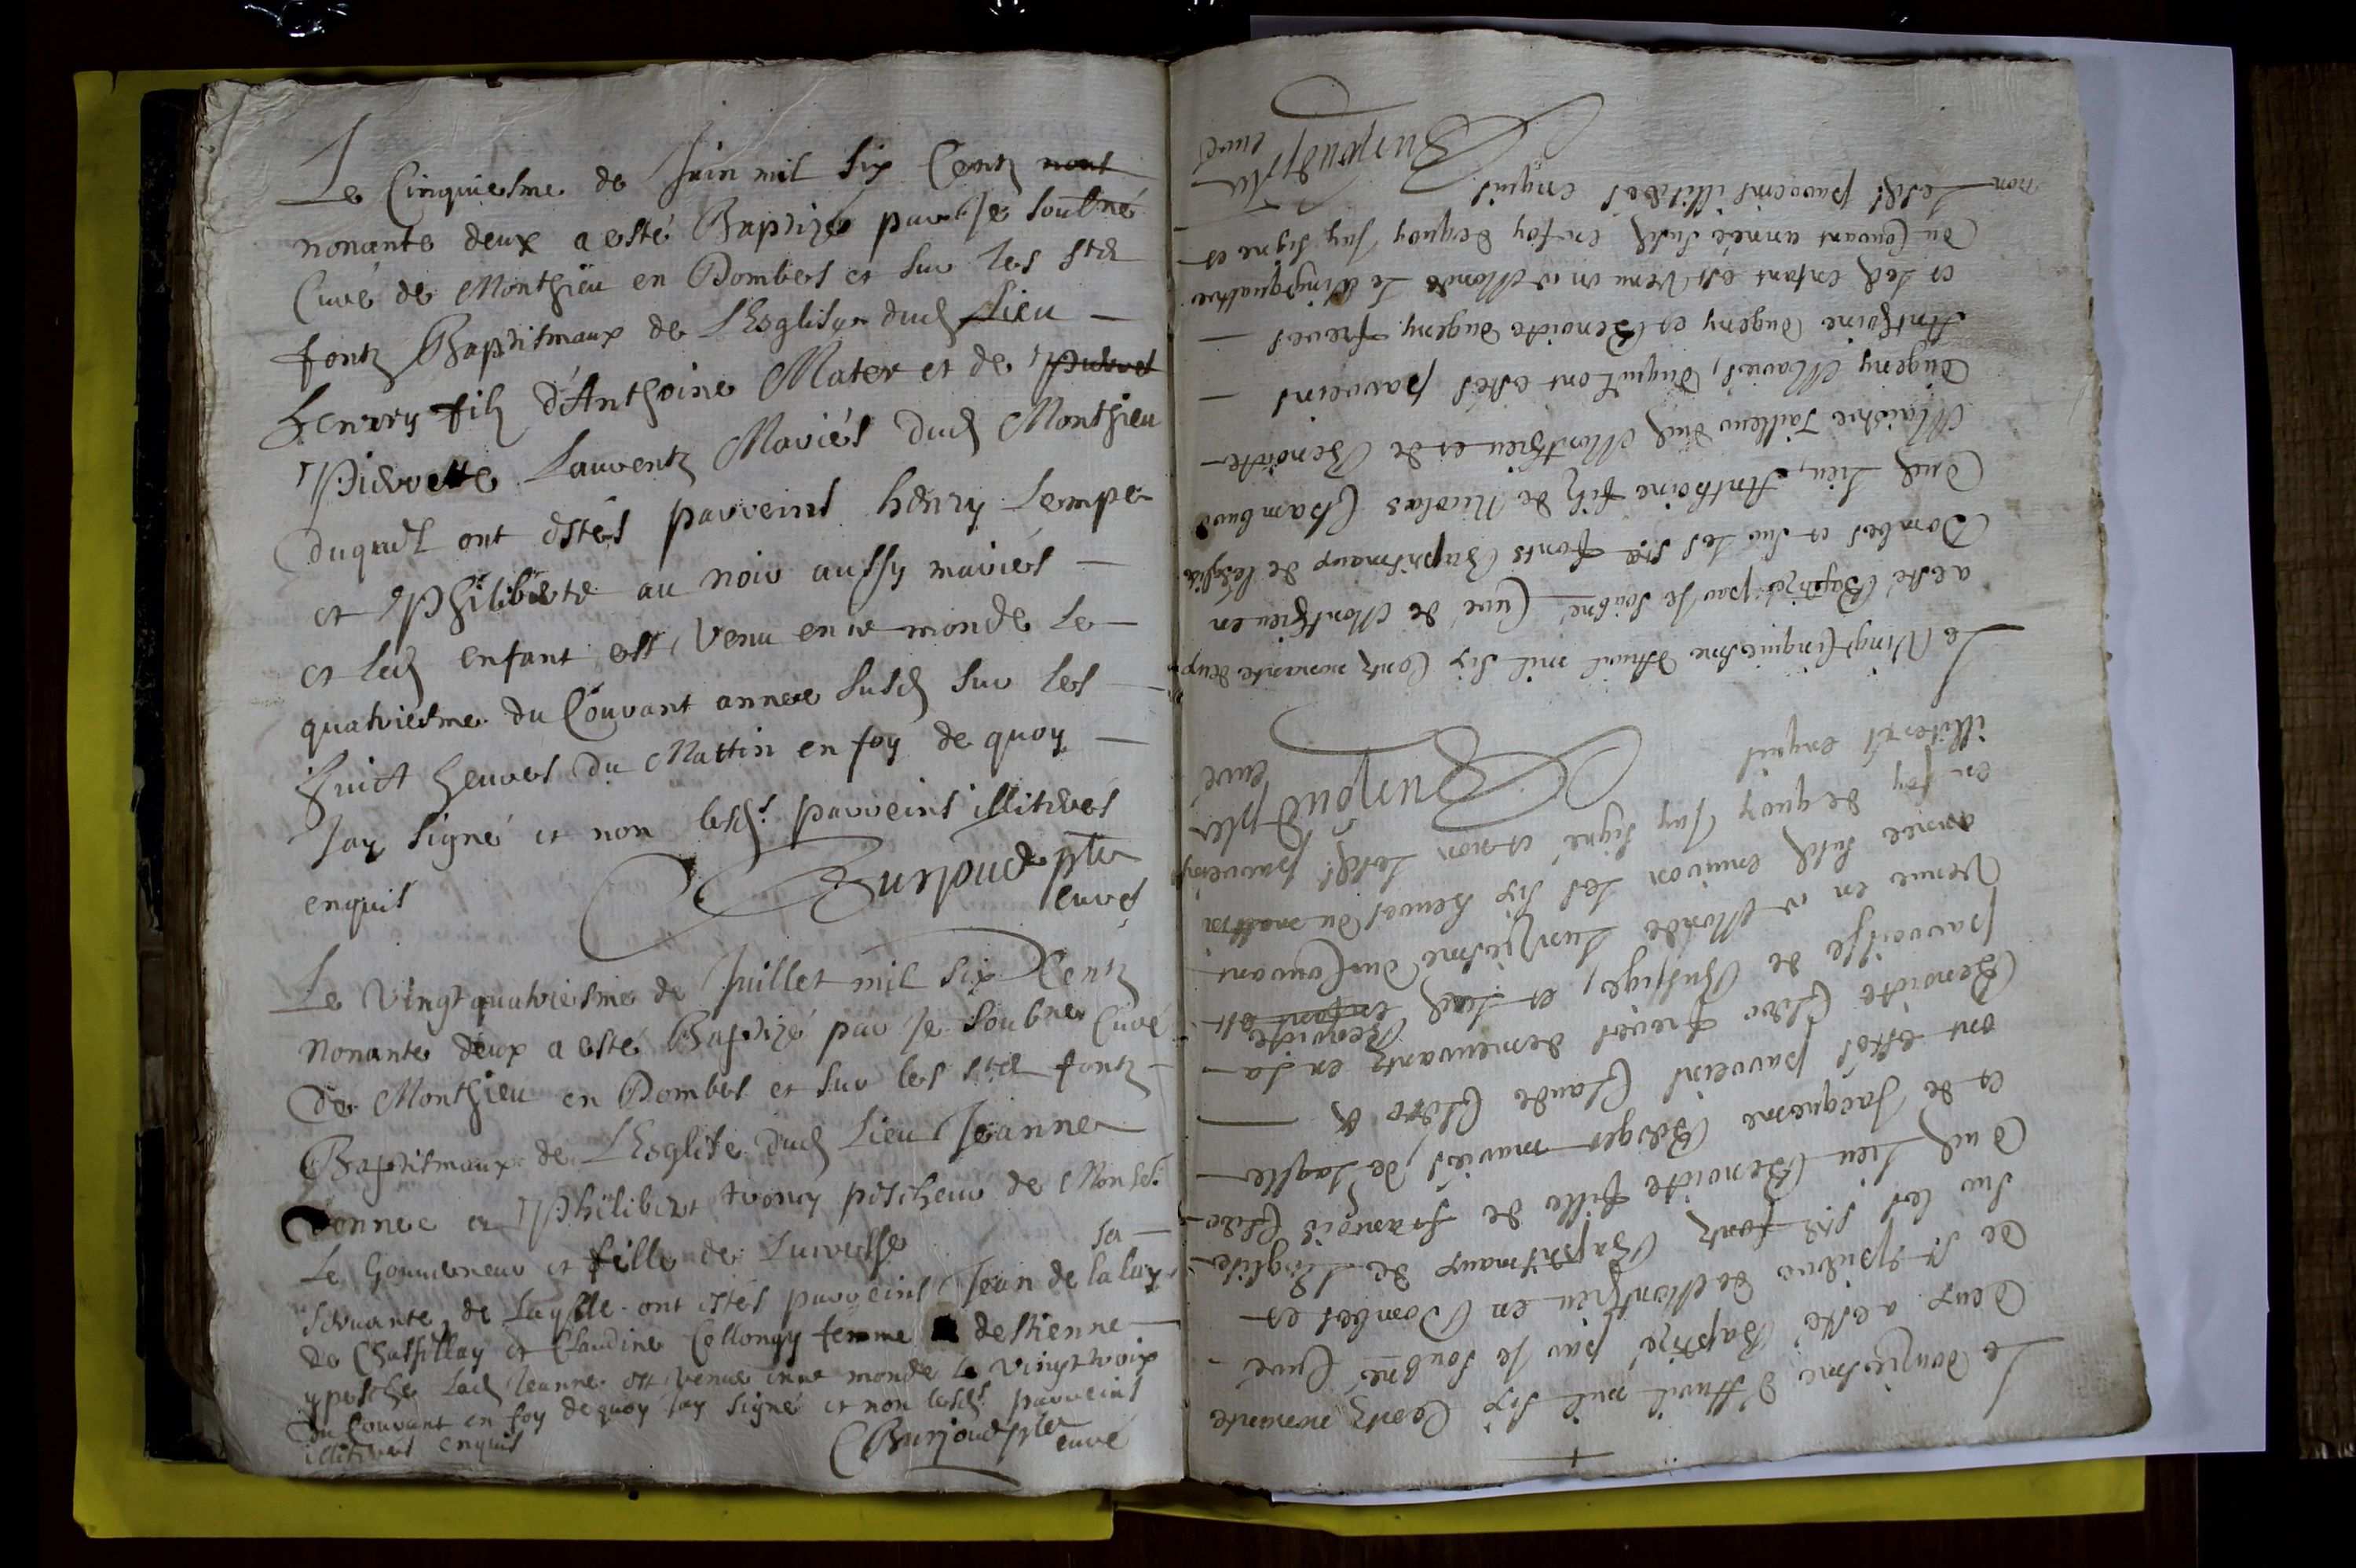 Le Cinquiesme de Juin mil six Centz nont
nonante deux a esté Baptizé par Je soubné
Curé de Monthieu en Dombes et sur les sts
fontz Baptismaux de L'Esglise dud Lieu
henrry filz d'Anthoine Mater et de Pierret
Pierrette Laurentz Mariés dud Monthieu
duquel ont estés parreins henry Lempe
et Philiberte au noir aussy mariés
et led enfant est venu en ce monde Le
quatriesme du Courant année susd sur les
huict heures du Mattin en foy de quoy
Jay signé et non lesds parreins illiteres
enquis Burjoud ptre
curé
Le vingt quatriesme de Juillet mil six Centz
nonante deux a esté Baptizé par Je soubné Curé
de Monthieu en Dombes et sur les sts fontz
Baptismaux de L'Esglise dud Lieu Jeanne
donnée a Philibert pescheur de Monsr
Le Gouverneur et fille de sa
servante, de Laqlle ont estés parreins Jean de la
de Chastillay et Claudine Collongy femme destienne
ypesche Lad Jeanne est venue en ce monde le vingt trois
du Courant en foy de quoy Jay signé et non lesds parreins
illiteres enquis Burjoud ptre
curé
Le douziesme d'Avril mil six Centz nonante
deux a esté Baptizé par Je soubné Curé
de St Pierre de Monthieu en Dombes et
sur les sts fontz Baptismaux de L'Esglise
dud Lieu Benoicte fille de françois Clerc
et de Jacqueme Berger mariés, de Laqlle
ont estés parreins Claude Clerc &
Benoicte Clerc freres demeurantz en La
parroisse de et Lad enfant est Benoicte
venue en ce Monde Lunziesme du Courant
année susd environ les six heures du mattin
en foy de quoy Jay signé et non Lesds parreins
illiteres enquis Burjoud ptre
curé
Le Vingt Cinquiesme d'Avril mil six Centz nonante deux
a esté Baptizé par Je soubné Curé de Monthieu en
Dombes et sur les sts fonts Baptismaux de l'esglise
dud Lieu, Anthoine filz de Nicolas Chambure
Maistre Tailleur dud Monthieu et de Benoicte
dugeny Mariés, duquel ont estés parreins
Anthoine dugeny et Benoicte dugeny freres
et led enfant est venu en ce Monde Le vingt quatre
du Courant année susd en foy de quoy Jay signé et
non Lesds parreins illiteres enquis
Burjoud ptre
curé